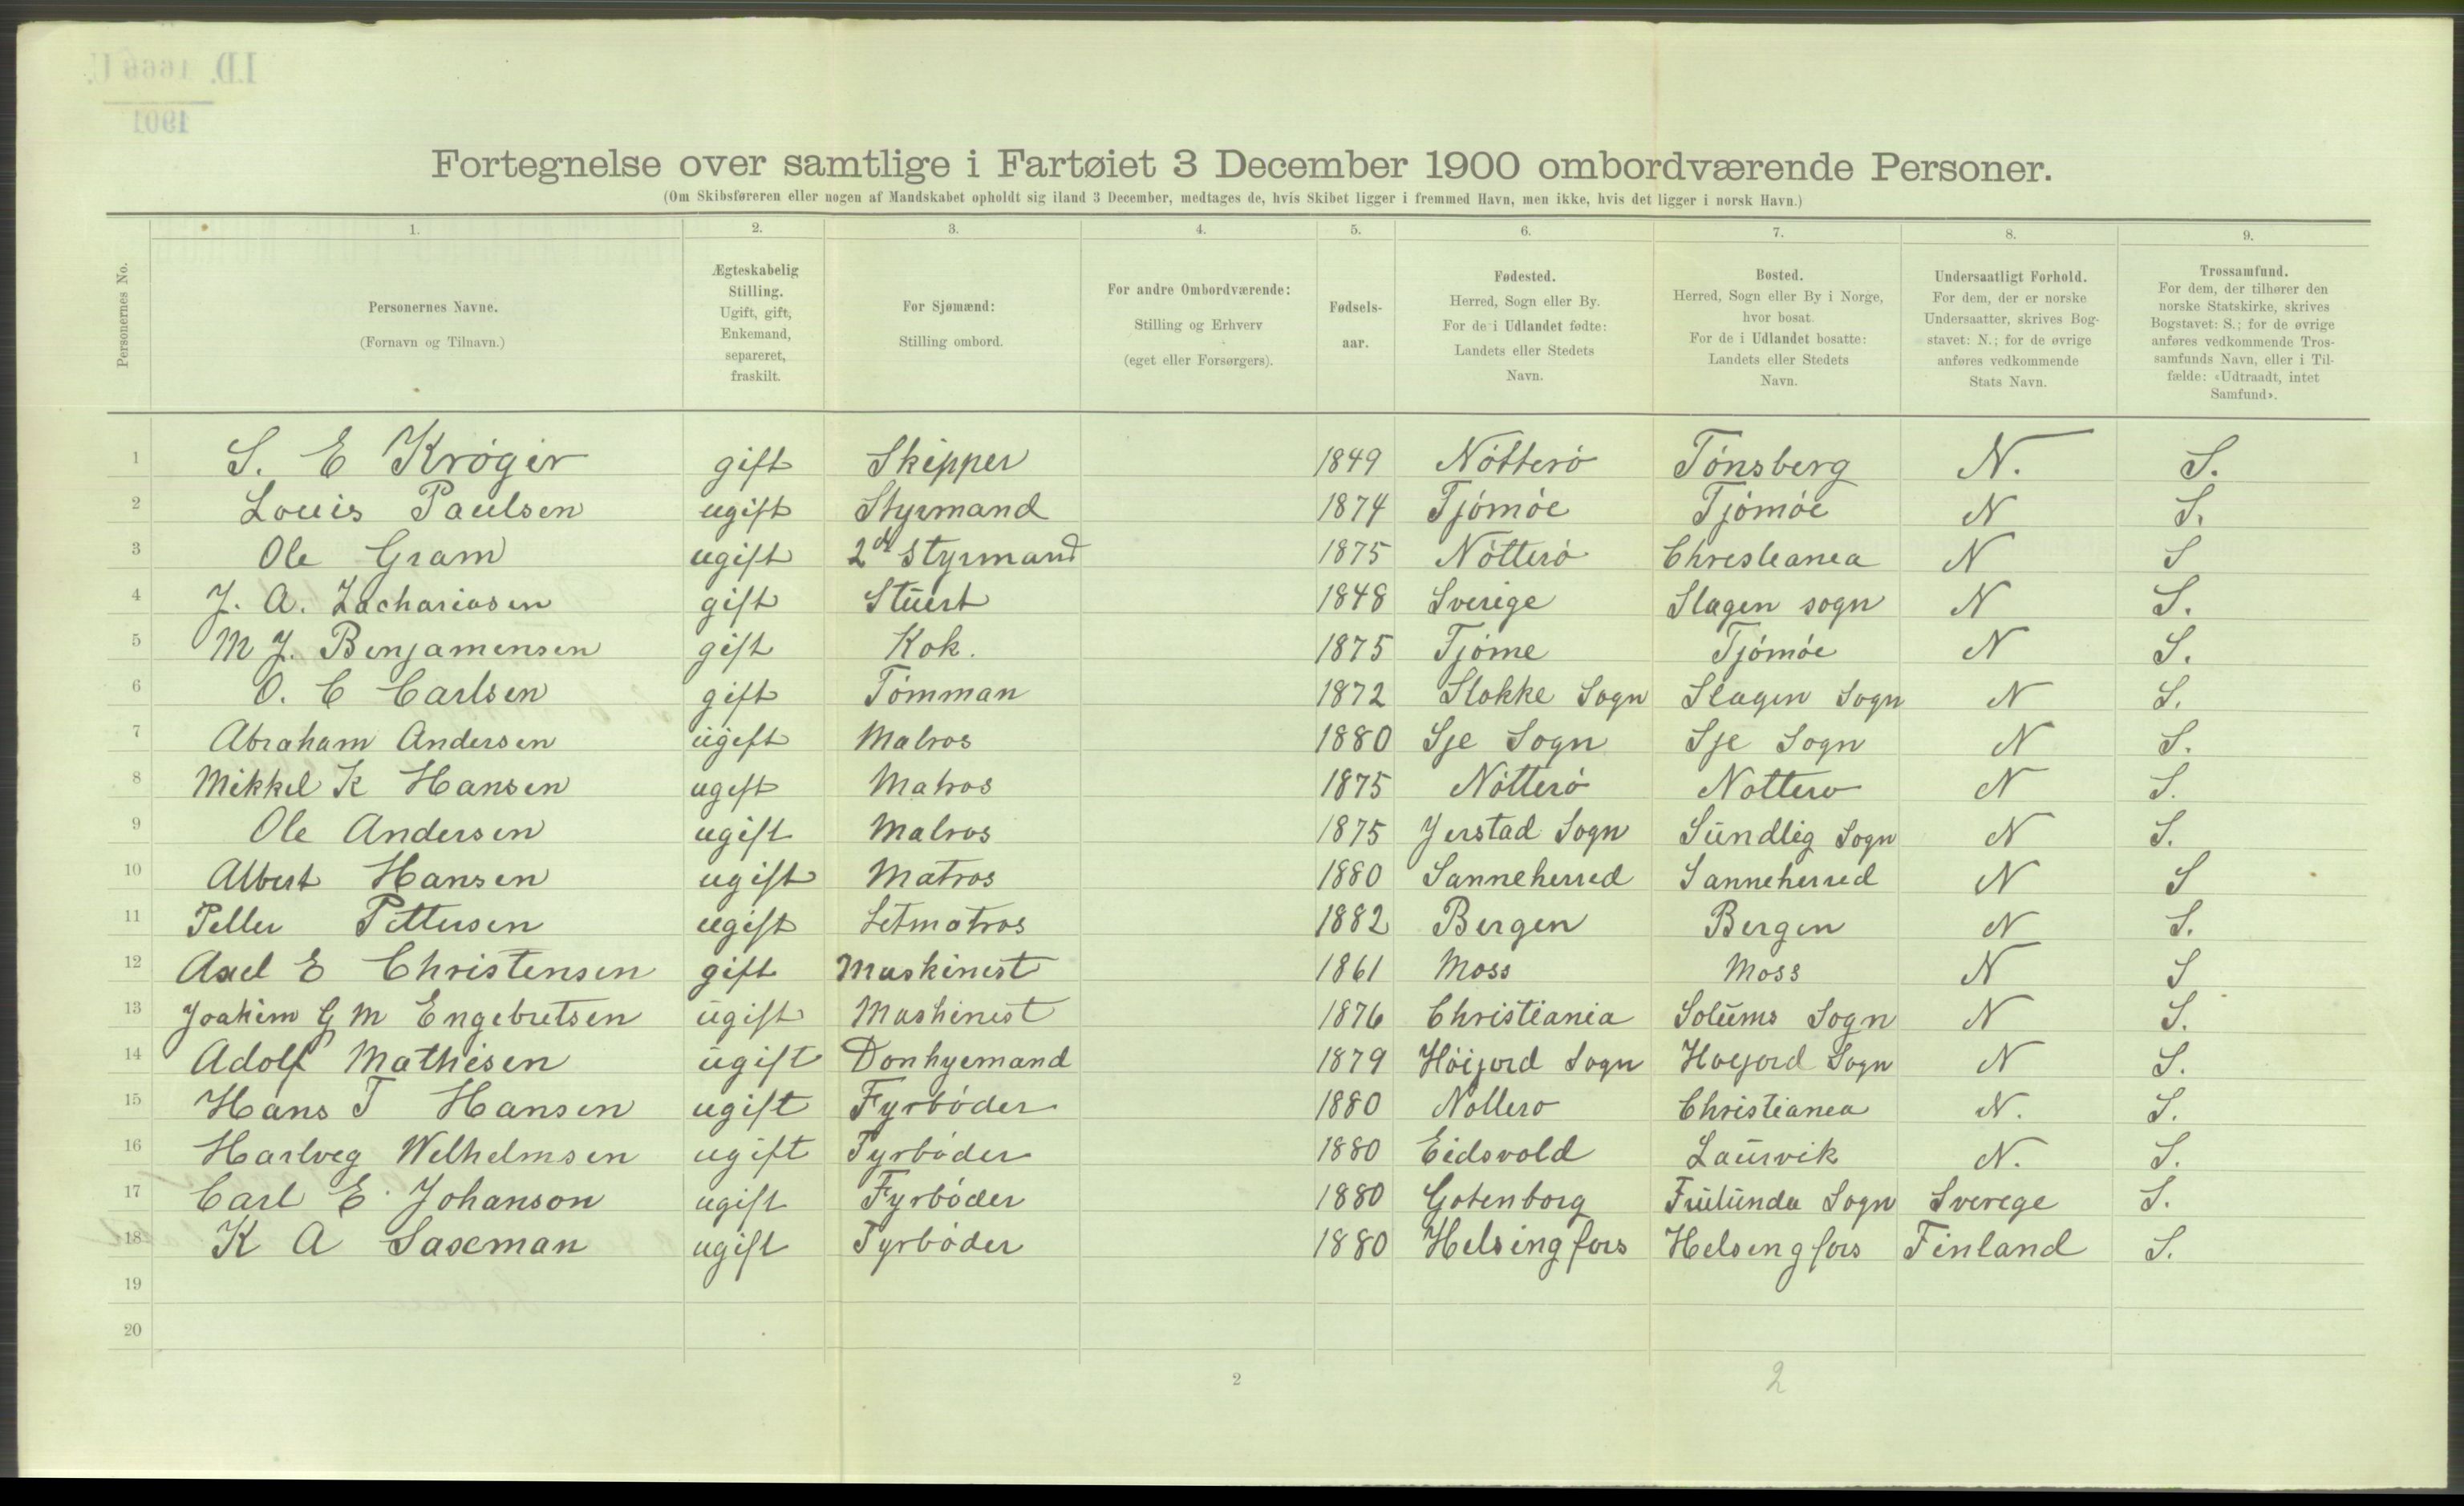 I.D. 1666 U.
1901
Fortegnelse over samtlige i Fartøiet 3 December 1900 ombordværende Personer.
(Om Skibsføreren eller nogen af Mandskabet opholdt sig iland 3 December, medtages de, hvis Skibet ligger i fremmed Havn, men ikke, hvis det ligger i norsk Havn.)
Personernes No.
1. 2. 3. 4. 5. 6. 7. 8. 9.
Personernes Navne.
(Fornavn og Tilnavn.)
Ægteskabelig
Stilling.
Ugift, gift,
Enkemand,
separeret,
fraskilt.
For Sjømænd:
Stilling ombord.
For andre Ombordværende:
Stilling og Erhverv
(eget eller Forsørgers).
Fødsels-
aar.
Fødested.
Herred, Sogn eller By.
For de i Udlandet fødte:
Landets eller Stedets
Navn.
Bosted.
Herred, Sogn eller By i Norge,
hvor bosat.
For de i Udlandet bosatte:
Landets eller Stedets
Navn.
Undersaatligt Forhold.
For dem, der er norske
Undersaatter, skrives Bog-
stavet: N.; for de øvrige
anføres vedkommende
Stats Navn.
Trossamfund.
For dem, der tilhører den
norske Statskirke, skrives
Bogstavet: S.; for de øvrige
anføres vedkommende Tros-
samfunds Navn, eller i Til-
fælde: «Udtraadt, intet
Samfund».
1 S. E Krøger gift Skipper 1849 Nötterö Tönsberg N. S.
2 Louis Paulsen ugift Styrmand 1874 Tjömöe Tjömöe N S.
3 Ole Gram ugift 2d Styrmand 1875 Nötterö Christeania N S
4 J. A. Zachariasen gift Stuert 1848 Sverige Slagen sogn N S.
5 M J. Benjamensen gift Kok. 1875 Tjöme Tjömöe N S.
6 O. C Carlsen gift Tömman 1872 Stokke Sogn Slagen Sogn N S.
7 Abraham Andersen ugift Matros 1880 Sje Sogn Sje Sogn N S.
8 Mikkel K Hansen ugift Matros 1875 Nötterö Nottero N S.
9 Ole Andersen ugift Matros 1875 Jerstad Sogn Sundlig Sogn N S.
10 Albert Hansen ugift Matros 1880 Sanneherred Sanneherred N S
11 Petter Pettersen ugift Letmatros 1882 Bergen Bergen N S.
12 Axel E Christensen gift Maskinest 1861 Moss Moss N S
13 Joakim G M Engebretsen ugift Maskinest 1876 Christiania Solums Sogn N S.
14 Adolf Mathisen ugift Donkyemand 1879 Höijord Sogn Hoejord Sogn N S.
15 Hans T Hansen ugift Fyrböder 1880 Nottero Christianea N. S.
16 Hartveg Welhelmsen ugift Fyrböder 1880 Eidsvold Laurvik N. S.
17 Carl E. Johanson ugift Fyrböder 1880 Gotenborg Sogn Sverege S.
18 K A ugift Fyrböder 1880 Helsingfors Helsengfors Finland S.
19
20
2 2